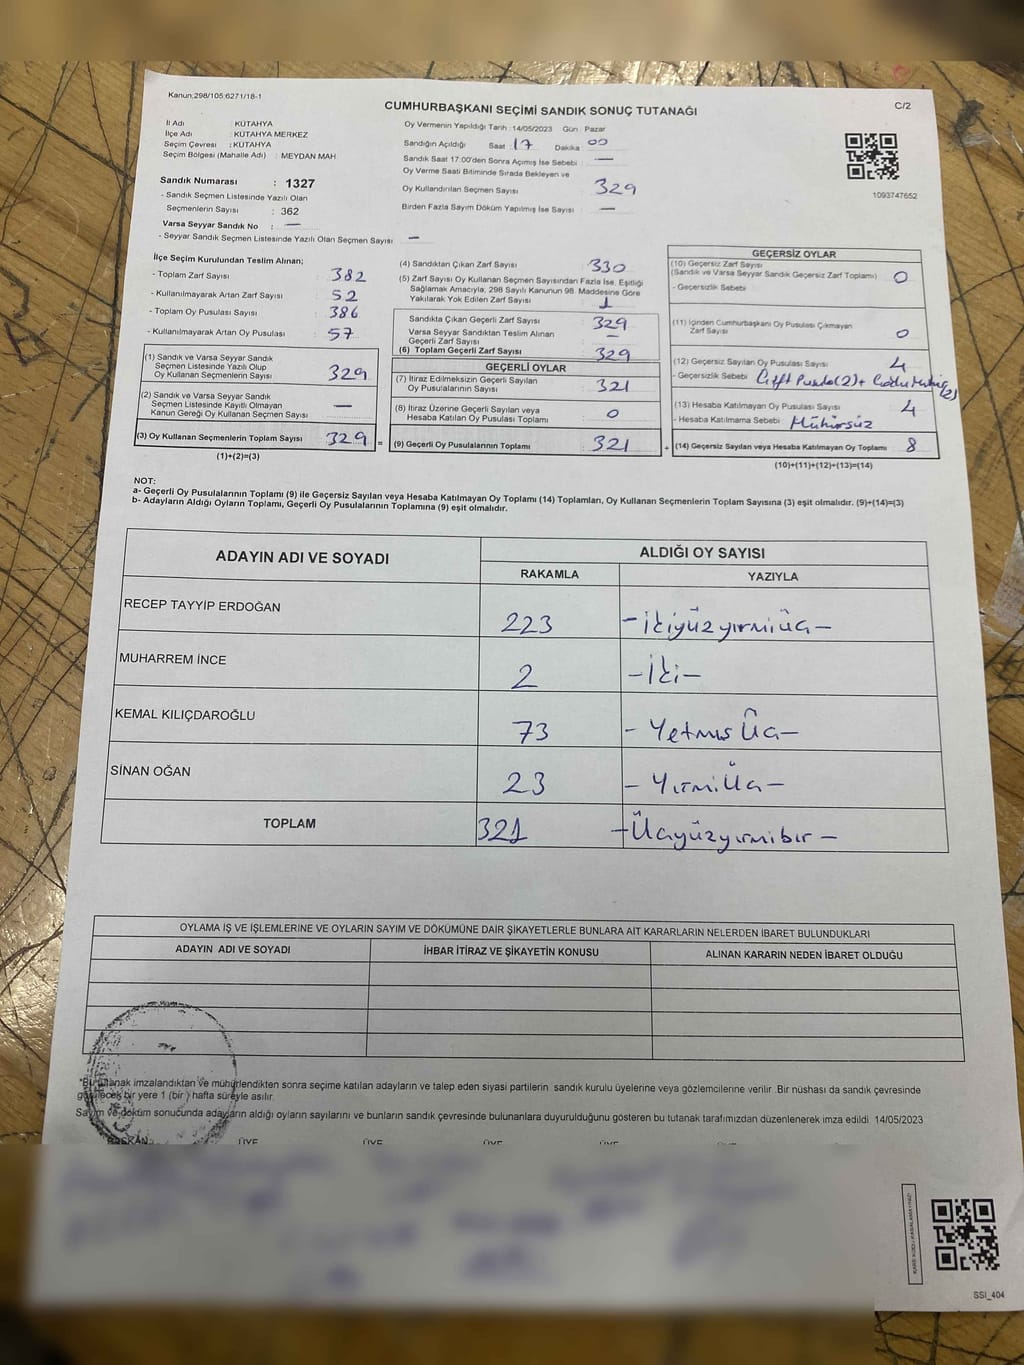 Kanun:298/105;6271/18-1
CUMHURBAŞKANI SEÇİMİ SANDIK SONUÇ TUTANAĞI
C/2
İl Adı : KÜTAHYA
İlçe Adı : KÜTAHYA MERKEZ
Seçim Çevresi : KÜTAHYA
Seçim Bölgesi (Mahalle Adı) : MEYDAN MAH
Sandık Numarası : 1327
- Sandık Seçmen Listesinde Yazılı Olan
Seçmenlerin Sayısı : 362
Varsa Seyyar Sandık No : —
- Seyyar Sandık Seçmen Listesinde Yazılı Olan Seçmen Sayısı : —
Oy Vermenin Yapıldığı Tarih :14/05/2023 Gün : Pazar
Sandığın Açıldığı Saat : 17 Dakika : 00
Sandık Saat 17:00'den Sonra Açımış İse Sebebi : —
Oy Verme Saati Bitiminde Sırada Bekleyen ve
Oy Kullandırılan Seçmen Sayısı : 329
Birden Fazla Sayım Döküm Yapılmış İse Sayısı : —
1093747652
İlçe Seçim Kurulundan Teslim Alınan;
- Toplam Zarf Sayısı : 382
- Kullanılmayarak Artan Zarf Sayısı : 52
- Toplam Oy Pusulası Sayısı : 386
- Kullanılmayarak Artan Oy Pusulası : 57
(1) Sandık ve Varsa Seyyar Sandık
Seçmen Listesinde Yazılı Olup
Oy Kullanan Seçmenlerin Sayısı : 329
(2) Sandık ve Varsa Seyyar Sandık
Seçmen Listesinde Kayıtlı Olmayan
Kanun Gereği Oy Kullanan Seçmen Sayısı : —
(3) Oy Kullanan Seçmenlerin Toplam Sayısı : 329 =
(1)+(2)=(3)
(4) Sandıktan Çıkan Zarf Sayısı : 330
(5) Zarf Sayısı Oy Kullanan Seçmen Sayısından Fazla İse, Eşitliği
Sağlamak Amacıyla, 298 Sayılı Kanunun 98. Maddesine Göre
Yakılarak Yok Edilen Zarf Sayısı : 1
Sandıkta Çıkan Geçerli Zarf Sayısı : 329
Varsa Seyyar Sandıktan Teslim Alınan
Geçerli Zarf Sayısı : —
(6) Toplam Geçerli Zarf Sayısı : 329
GEÇERLİ OYLAR
(7) İtiraz Edilmeksizin Geçerli Sayılan
Oy Pusulalarının Sayısı : 321
(8) İtiraz Üzerine Geçerli Sayılan veya
Hesaba Katılan Oy Pusulası Toplamı : 0
(9) Geçerli Oy Pusulalarının Toplamı : 321 +
GEÇERSİZ OYLAR
(10) Geçersiz Zarf Sayısı
(Sandık ve Varsa Seyyar Sandık Geçersiz Zarf Toplamı) : 0
- Geçersizlik Sebebi
(11) İçinden Cumhurbaşkanı Oy Pusulası Çıkmayan
Zarf Sayısı : 0
(12) Geçersiz Sayılan Oy Pusulası Sayısı : 4
- Geçersizlik Sebebi : Çift Pusula(2)+ (2)
(13) Hesaba Katılmayan Oy Pusulası Sayısı : 4
- Hesaba Katılmama Sebebi : Mühürsüz
(14) Geçersiz Sayılan veya Hesaba Katılmayan Oy Toplamı : 8
(10)+(11)+(12)+(13)=(14)
NOT:
a- Geçerli Oy Pusulalarının Toplamı (9) ile Geçersiz Sayılan veya Hesaba Katılmayan Oy Toplamı (14) Toplamları, Oy Kullanan Seçmenlerin Toplam Sayısına (3) eşit olmalıdır. (9)+(14)=(3)
b- Adayların Aldığı Oyların Toplamı, Geçerli Oy Pusulalarının Toplamına (9) eşit olmalıdır.
ADAYIN ADI VE SOYADI
ALDIĞI OY SAYISI
RAKAMLA YAZIYLA
RECEP TAYYİP ERDOĞAN 223 -İkiyüzyirmiüç-
MUHARREM İNCE 2 -İki-
KEMAL KILIÇDAROĞLU 73 -Yetmiş Üç-
SİNAN OĞAN 23 -YirmiÜç-
TOPLAM 321 -Üçyüzyirmibir-
OYLAMA İŞ VE İŞLEMLERİNE VE OYLARIN SAYIM VE DÖKÜMÜNE DAİR ŞİKAYETLERLE BUNLARA AİT KARARLARIN NELERDEN İBARET BULUNDUKLARI
ADAYIN ADI VE SOYADI İHBAR İTİRAZ VE ŞİKAYETİN KONUSU ALINAN KARARIN NEDEN İBARET OLDUĞU
*Bu tutanak imzalandıktan ve mühürlendikten sonra seçime katılan adayların ve talep eden siyasi partilerin sandık kurulu üyelerine veya gözlemcilerine verilir .Bir nüshası da sandık çevresinde
görülecek bir yere 1 (bir ) hafta süreyle asılır.
Sayım ve döküm sonucunda adayların aldığı oyların sayılarını ve bunların sandık çevresinde bulunanlara duyurulduğunu gösteren bu tutanak tarafımızdan düzenlenerek imza edildi 14/05/2023
BAŞKAN ÜYE ÜYE ÜYE ÜYE
SSI_404